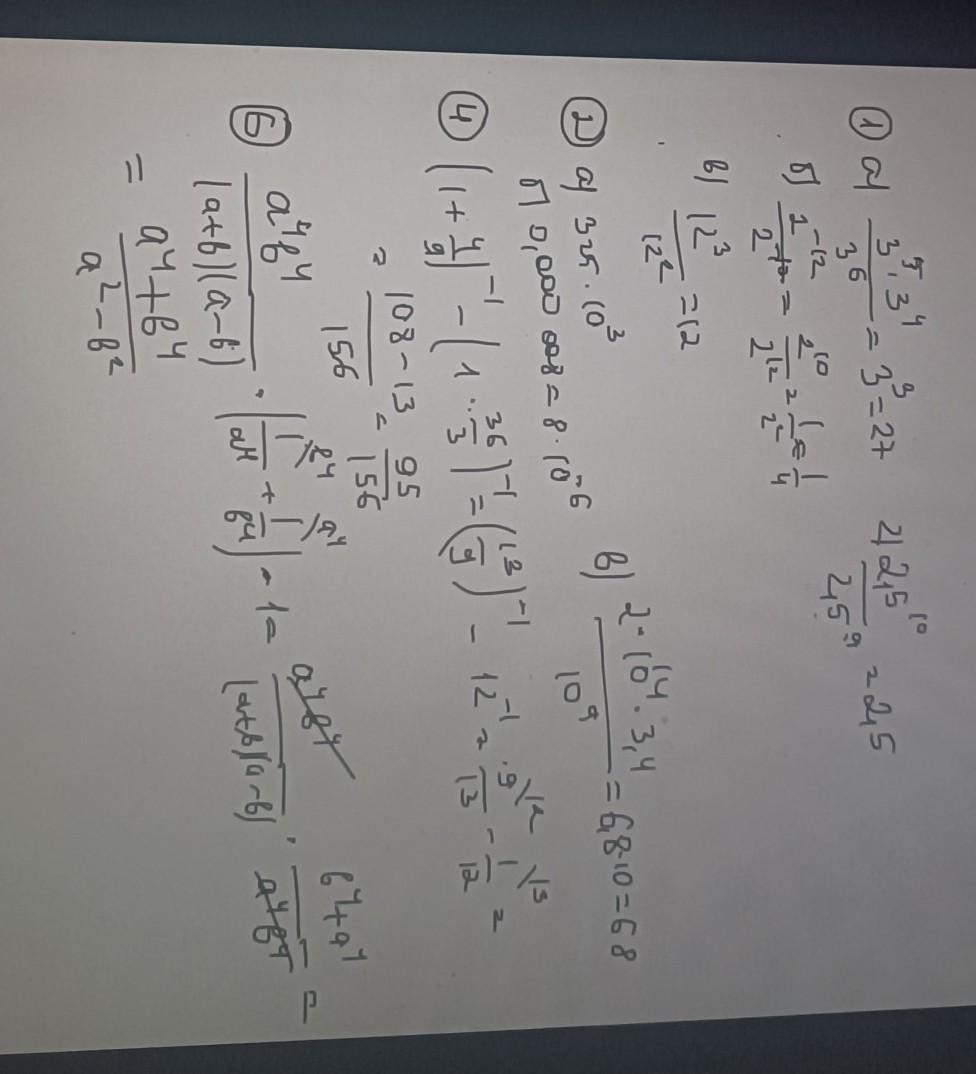 ① а) (3^5 · 3^4)/3^6 = 3^3 = 27 г) 2,5^10/2,5^9 = 2,5
б) 2^-12/2^-10 = 2^10/2^12 = 1/2^2 = 1/4
в) 12^3/12^2 = 12
② а) 325 · 10^3
б) 0,000 008 = 8 · 10^-6 в) (2 · 10^14 · 3,4)/10^9 = 6,8·10 = 68
④ (1 + 4/9)^-1 − (1 · 36/3)^-1 = (13/9)^-1 − 12^-1 = 9/13 − 1/12 =
= (108 − 13)/156 = 95/156
⑥ a^4b^4/((a+b)(a−b)) · (1/a^4 + 1/b^4) · 1 = a^4b^4/((a+b)(a−b)) · (b^4+a^4)/(a^4b^4) =
= (a^4+b^4)/(a^2−b^2)